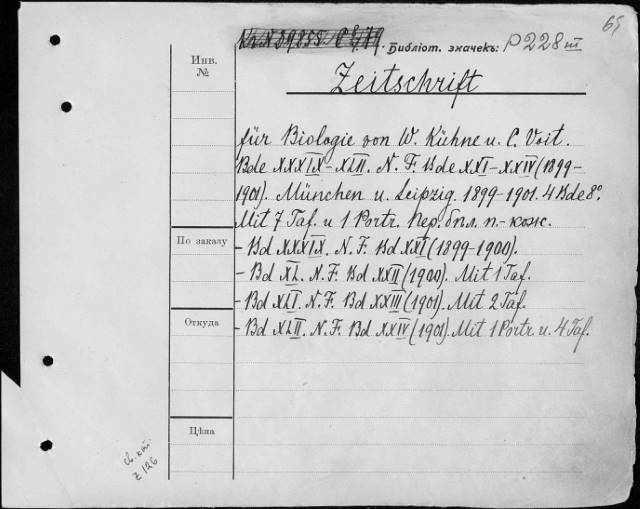 65
Библiот. значекъ: P 228 III
Инв.
№
Zeitschrift
für Biologie von W. Kühne u. C. Voit.
Bde XXXIX-XLII. N. F. Bde XXI-XXIV (1899-
1901). München u. Leipzig. 1899-1901. 4 Bde 8°.
Mit 7 Taf. u 1 Portr. Пер. бпл. п.-кож.
По заказу
- Bd XXXIX. N. F. Bd XXI (1899-1900).
- Bd XL. N. F. Bd XXII (1900). Mit 1 Taf.
- Bd XLI. N. F. Bd XXIII (1901). Mit 2 Taf.
Откуда
- Bd XLII. N. F. Bd XXIV (1901). Mit 1 Portr. u. 4 Taf.
Цѣна
Z 126